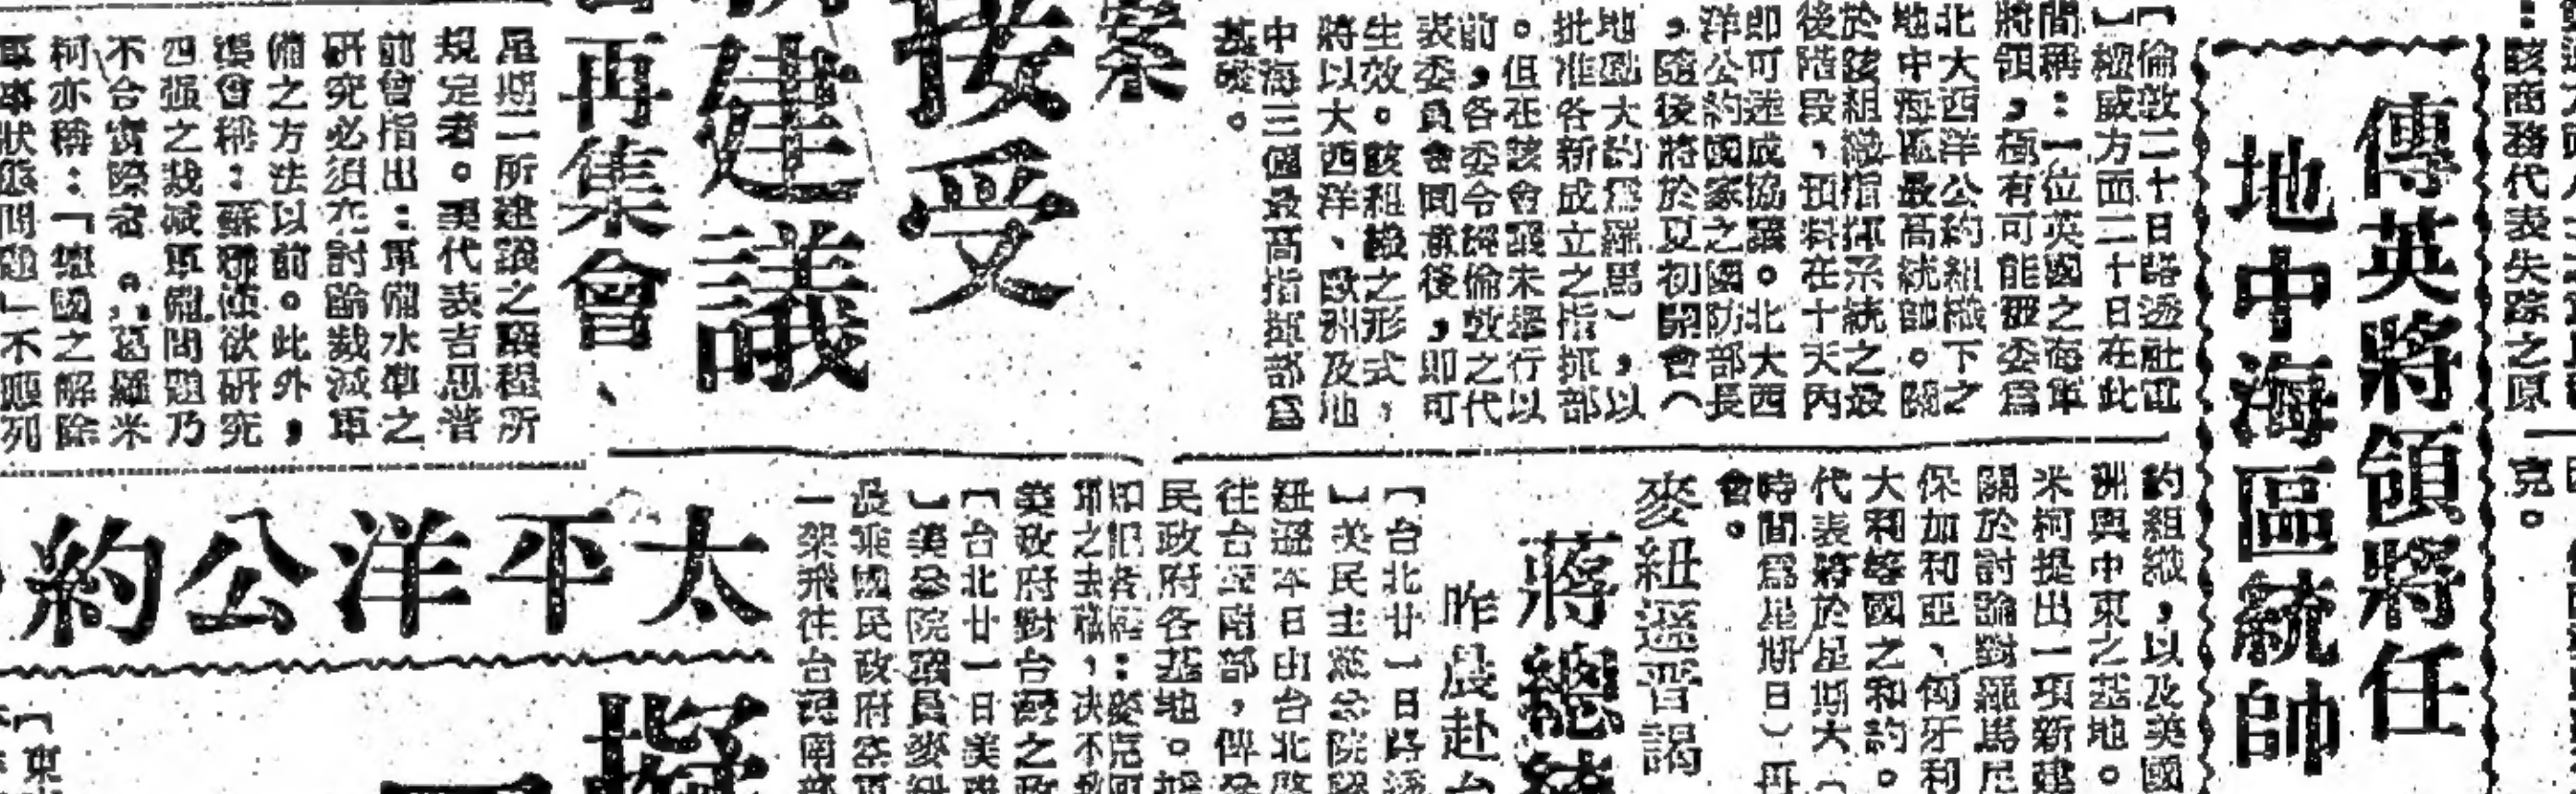 ：該商務代表失踪之原
克。
傳英將領將任
地中海區統帥
【倫敦二十日路透社電
】權威方面二十日在此
間稱：一位英國之海軍
將領，極有可能被委爲
北大西洋公約組織下之
地中海區最高統帥。關
於該組織指揮系統之最
後階段，預料在十天內
即可達成協議。北大西
洋公約國家之國防部長
，隨後將於夏初開會（
地點大約爲羅馬），以
批准各新成立之指揮部
。但在該會議未舉行以
前，各委令經倫敦之代
表委員會同意後，即可
生效。該組織之形式，
將以大西洋、歐洲及地
中海三個最高指揮部爲
基礎。
約組織，以及美國
洲與中東之基地。
米柯提出一項新建
關於討論對羅馬尼
保加利亞、匈牙利
大利等國之和約。
代表將於星期六（
時間爲星期日）再
會。
麥紐遜晋謁
蔣總統
昨晨赴台
【台北廿一日路透
】美民主黨參院議
紐遜本日由台北
往台灣南部，俾
民政府各基地。據
美政府對台灣之政
【台北廿一日美聯
】美參院議員麥紐
長乘國民政府空軍
一架飛往台灣南部
案
接受
建議
再集會、
星期二所建議之議程所
規定者。美代表吉思普
前曾指出：軍備水準之
研究必須在討論裁減軍
備之方法以前。此外，
馮曾稱：蘇聯僅欲研究
四强之裁減軍備問題乃
不合實際者。葛羅米
柯亦稱：「德國之解除
軍事狀態問題」不應列
太平洋公約
擬
【東